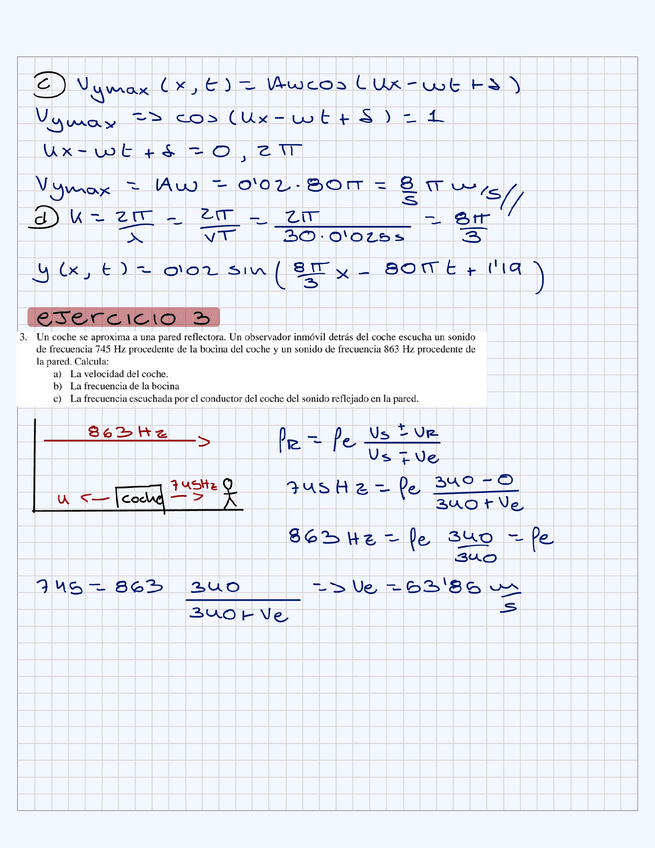 c) Vymax (x, t) = |Awcos (kx - wt + δ)
Vymax => cos (kx - wt + δ) = 1
kx - wt + δ = 0, 2π
Vymax = |Aw = 0'02 · 80π = 8/5 π m/s//
d) k = 2π/λ = 2π/vT = 2π/30·0'025s = 8π/3
y (x, t) = 0'02 sin (8π/3 x - 80πt + 1'19)
ejercicio 3
3. Un coche se aproxima a una pared reflectora. Un observador inmóvil detrás del coche escucha un sonido
de frecuencia 745 Hz procedente de la bocina del coche y un sonido de frecuencia 863 Hz procedente de
la pared. Calcula:
a) La velocidad del coche.
b) La frecuencia de la bocina
c) La frecuencia escuchada por el conductor del coche del sonido reflejado en la pared.
863 Hz
u <— coche 745Hz —>
fR = fe Vs ± VR / Vs ∓ Ve
745 Hz = fe 340 - 0 / 340 + Ve
863 Hz = fe 340/340 = fe
745 = 863 340 / 340 + Ve => Ve = 53'85 m/s